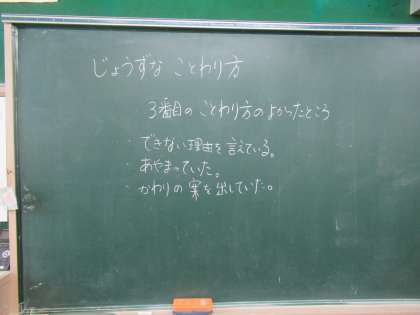 じょうずな ことわり方
3番目の ことわり方のよかったところ
・できない理由を言えている。
・あやまっていた。
・かわりの案を出していた。